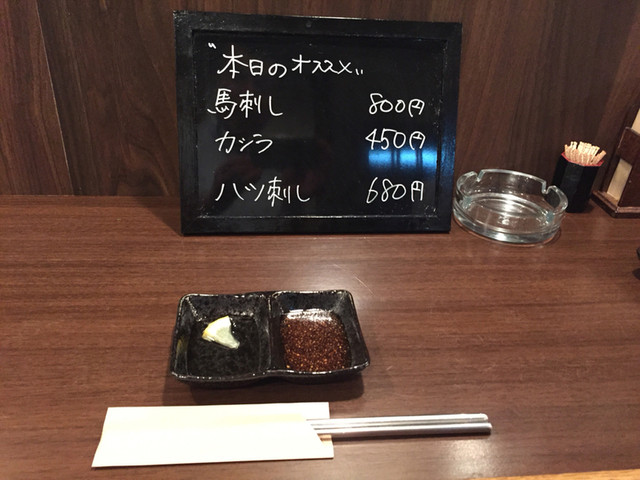 〝本日のオススメ〟
馬刺し 800円
カシラ 450円
ハツ刺し 680円